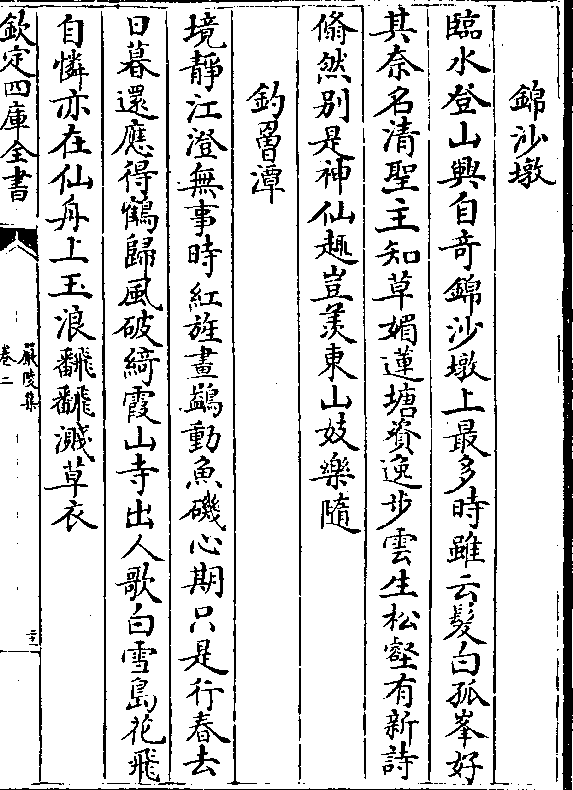 錦沙墩
臨水登山興自竒錦沙墩上最多時雖云髮白孤峯好
其奈名清聖主知草媚蓮塘資逸步雲生松壑有新詩
翛然别是神仙趣豈羨東山妓樂隨
釣罾潭
境靜江澄無事時紅旌畫鷁動魚磯心期只是行春去
日暮還應得鶴歸風破綺霞山寺出人歌白雪島花飛
自憐亦在仙舟上玉浪翻翻濺草衣
欽定四庫全書
嚴陵集
卷二